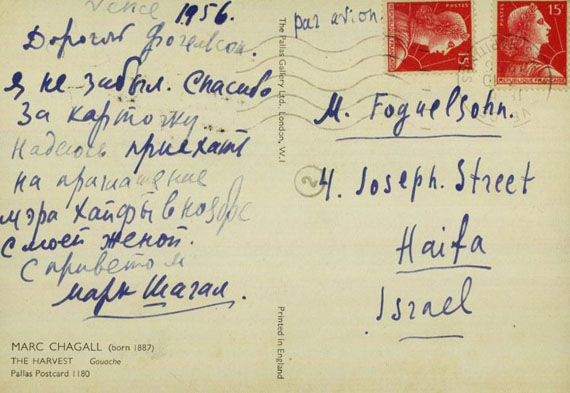 Vence 1956.
Дорогой Фогельсон.
Я не забыл. Спасибо
За карточку
Надеюсь приехать
на приглашение
мэра Хайфы в ноябре
с моей женой.
С приветом
Марк Шагал.
MARC CHAGALL (born 1887)
THE HARVEST Gouache
Pallas Postcard 1180
The Pallas Gallery Ltd., London, W.1
Printed in England
par avion.
POSTES
15F
REPUBLIQUE FRANÇAISE
POSTES
15F
REPUBLIQUE FRANÇAISE
M. Foguelsohn.
2
4. Joseph. Street
Haifa
Israel